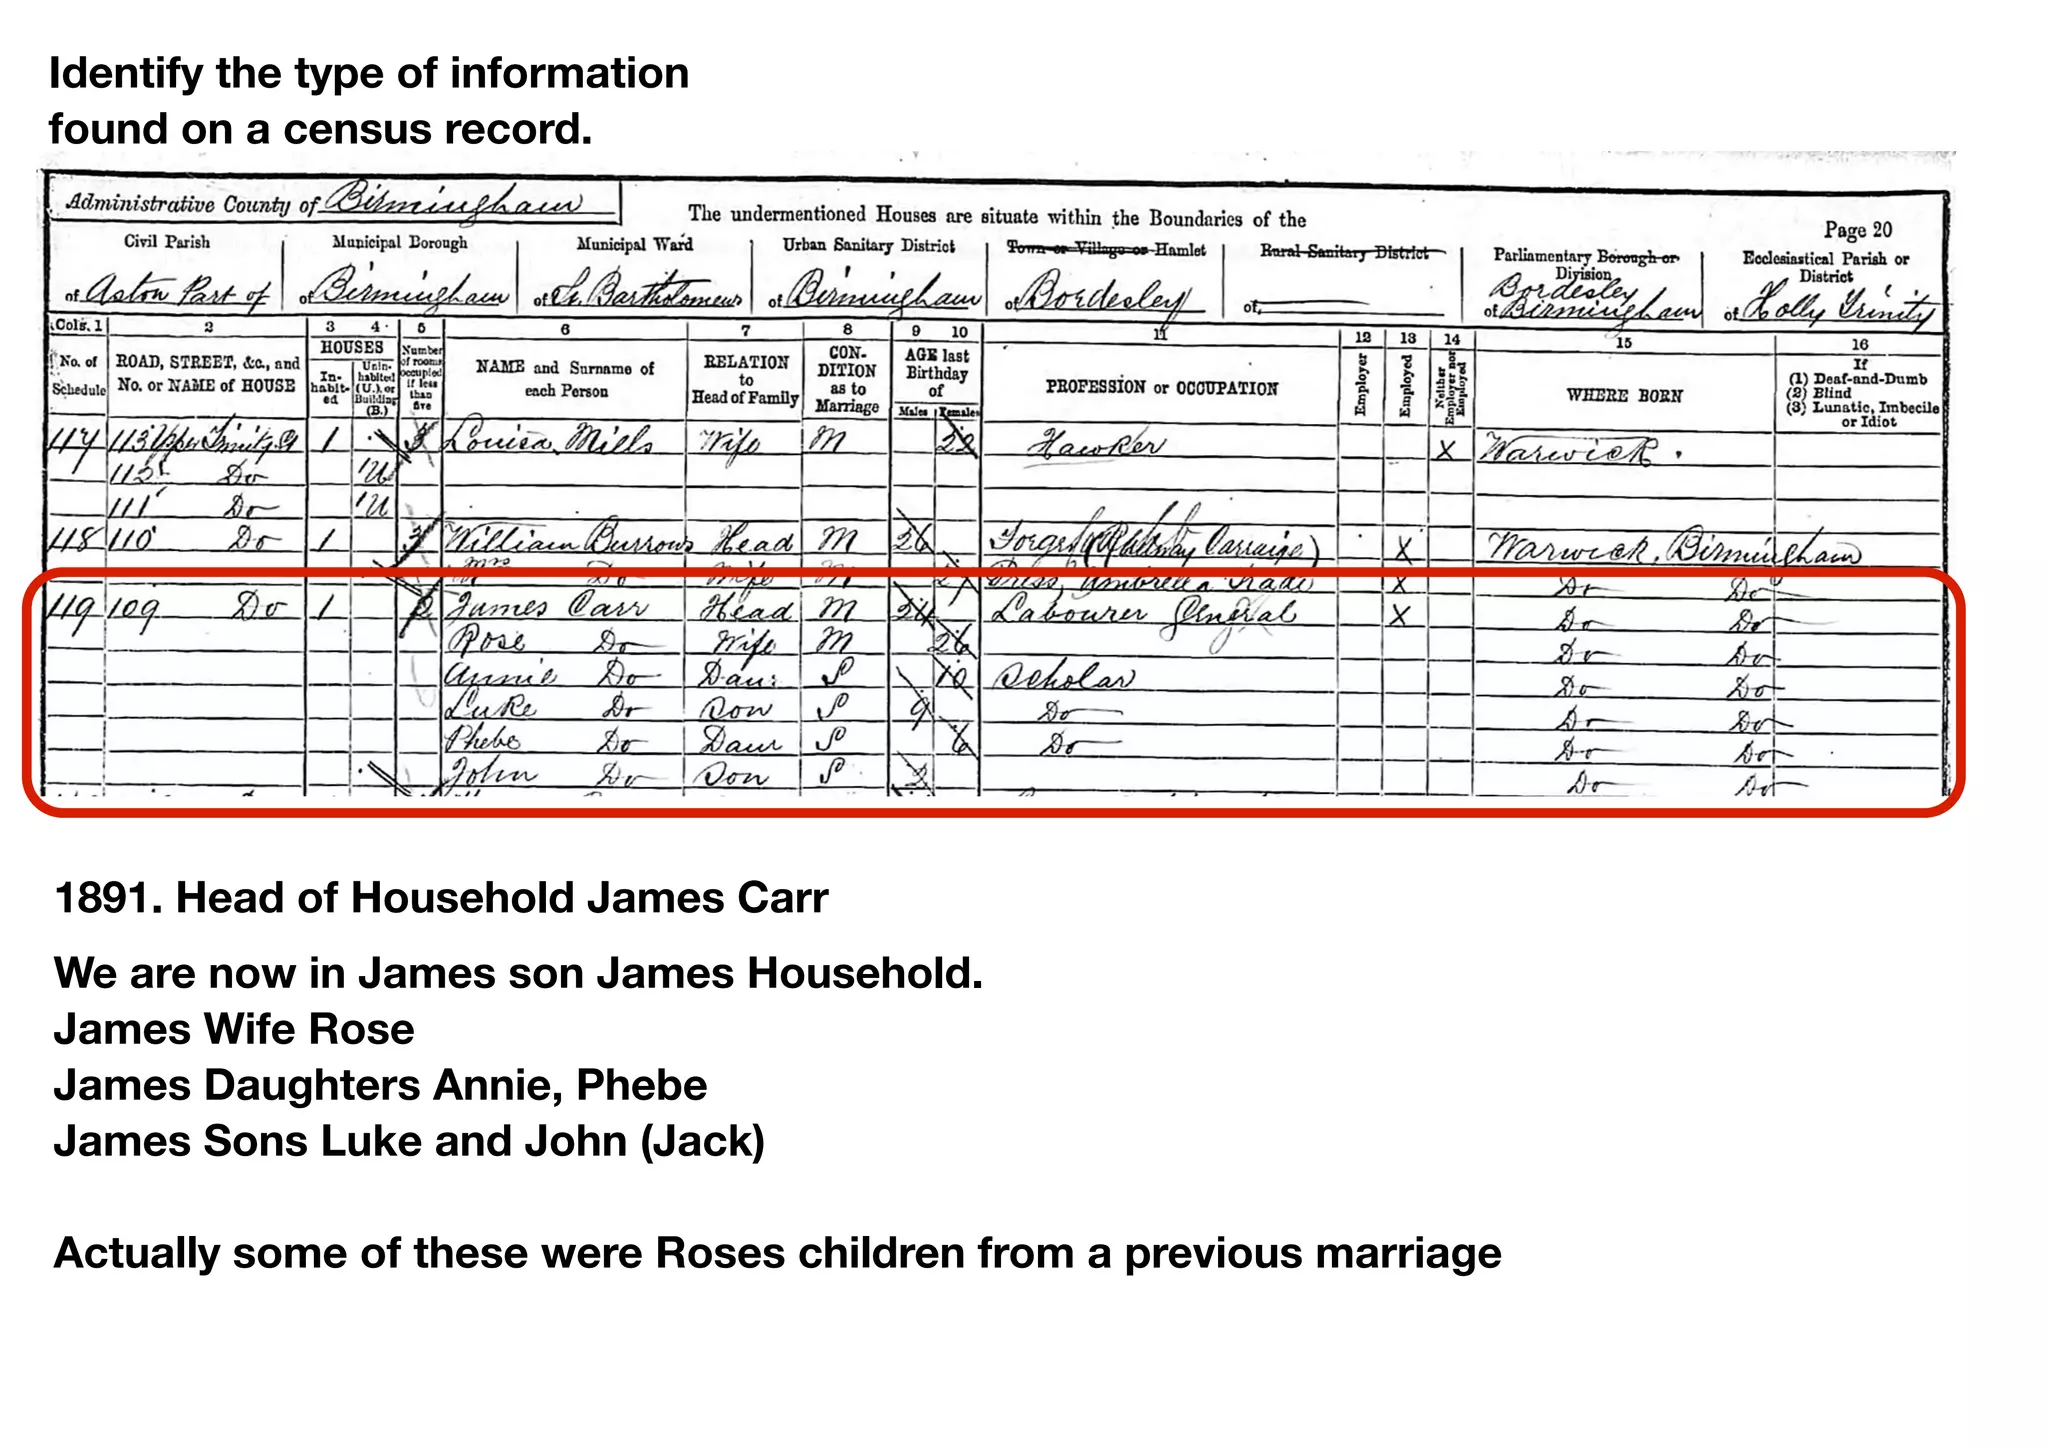 Identify the type of information
found on a census record.
Administrative County of Birmingham
The undermentioned Houses are situate within the Boundaries of the
Page 20
Civil Parish
of Aston Part of
Municipal Borough
of Birmingham
Municipal Ward
of St. Bartholomews
Urban Sanitary District
of Birmingham
Town or Village or Hamlet
of Bordesley
Rural Sanitary District
of
Parliamentary Borough or
Division
Bordesley
of Birmingham
Ecclesiastical Parish or
District
of Holly Trinity
Cols. 1 2 3 4 5 6 7 8 9 10 11 12 13 14 15 16
No. of
Schedule
ROAD, STREET, &c., and
No. or NAME of HOUSE
HOUSES
In-
habit-
ed
Unin-
habited
(U.), or
Building
(B.)
Number
of rooms
occupied
if less
than
five
NAME and Surname of
each Person
RELATION
to
Head of Family
CON-
DITION
as to
Marriage
AGE last
Birthday
of
Males Females
PROFESSION or OCCUPATION
Employer
Employed
Neither
Employer nor
Employed
WHERE BORN
If
(1) Deaf-and-Dumb
(2) Blind
(3) Lunatic, Imbecile
or Idiot
117 113 Upper Trinity St 1 3 Louisa Mills Wife M 22 Hawker X Warwick
112 Do 1U
111 Do 1U
118 110 Do 1 3 William Burrows Head M 26 Forger (Railway Carraige) X Warwick, Birmingham
Mrs Do Wife M 27 Press, Umbrella Trade X Do Do
119 109 Do 1 James Carr Head M 24 Labourer General X Do Do
Rose Do Wife M 26 Do Do
Annie Do Daur S 10 Scholar Do Do
Luke Do Son S 9 Do Do Do
Phebe Do Daur S 6 Do Do Do
John Do Son S 3 Do Do
1891. Head of Household James Carr
We are now in James son James Household.
James Wife Rose
James Daughters Annie, Phebe
James Sons Luke and John (Jack)
Actually some of these were Roses children from a previous marriage